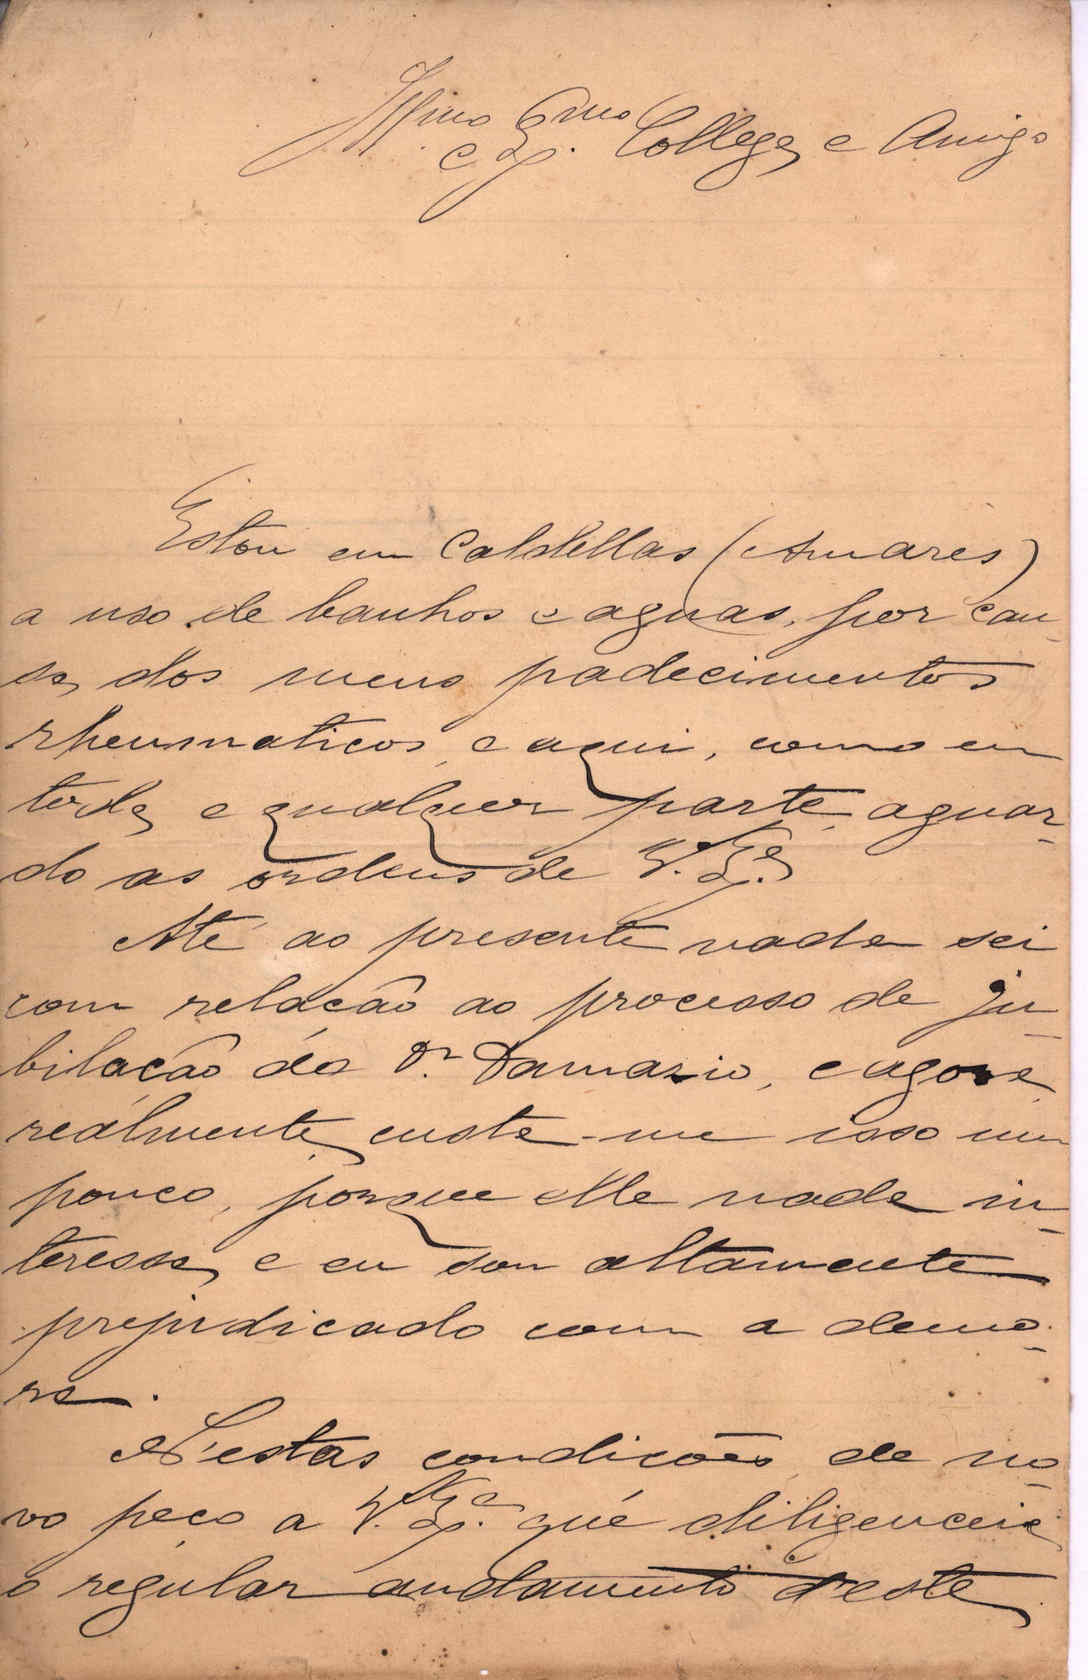 Illmo e Exmo Collega e Amigo
Estou em Caldellas (Amares)
a uso de banhos e aguas, por cau-
sa dos meus padecimentos
rheumaticos, e aqui, como em
toda e qualquer parte, aguar-
do as ordens de V. Exª
Até ao presente nada sei
com relação ao processo de ju-
bilação do Dr. Damazio, e agora
realmente custa-me isso um
pouco, porque elle nada in-
teressa, e eu sou altamente
prejudicado com a demo-
ra.
N'estas condições, de no-
vo peço a V. Exª que diligenceie
o regular andamento d'este